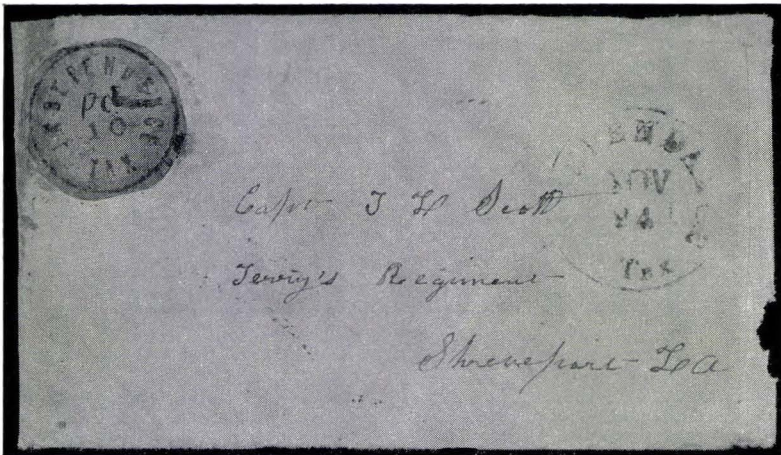 INDEPENDENCE TEX
Pd
10
NOV
24
Tex
Capt T H Scott
Terry's Regiment
Shreveport La